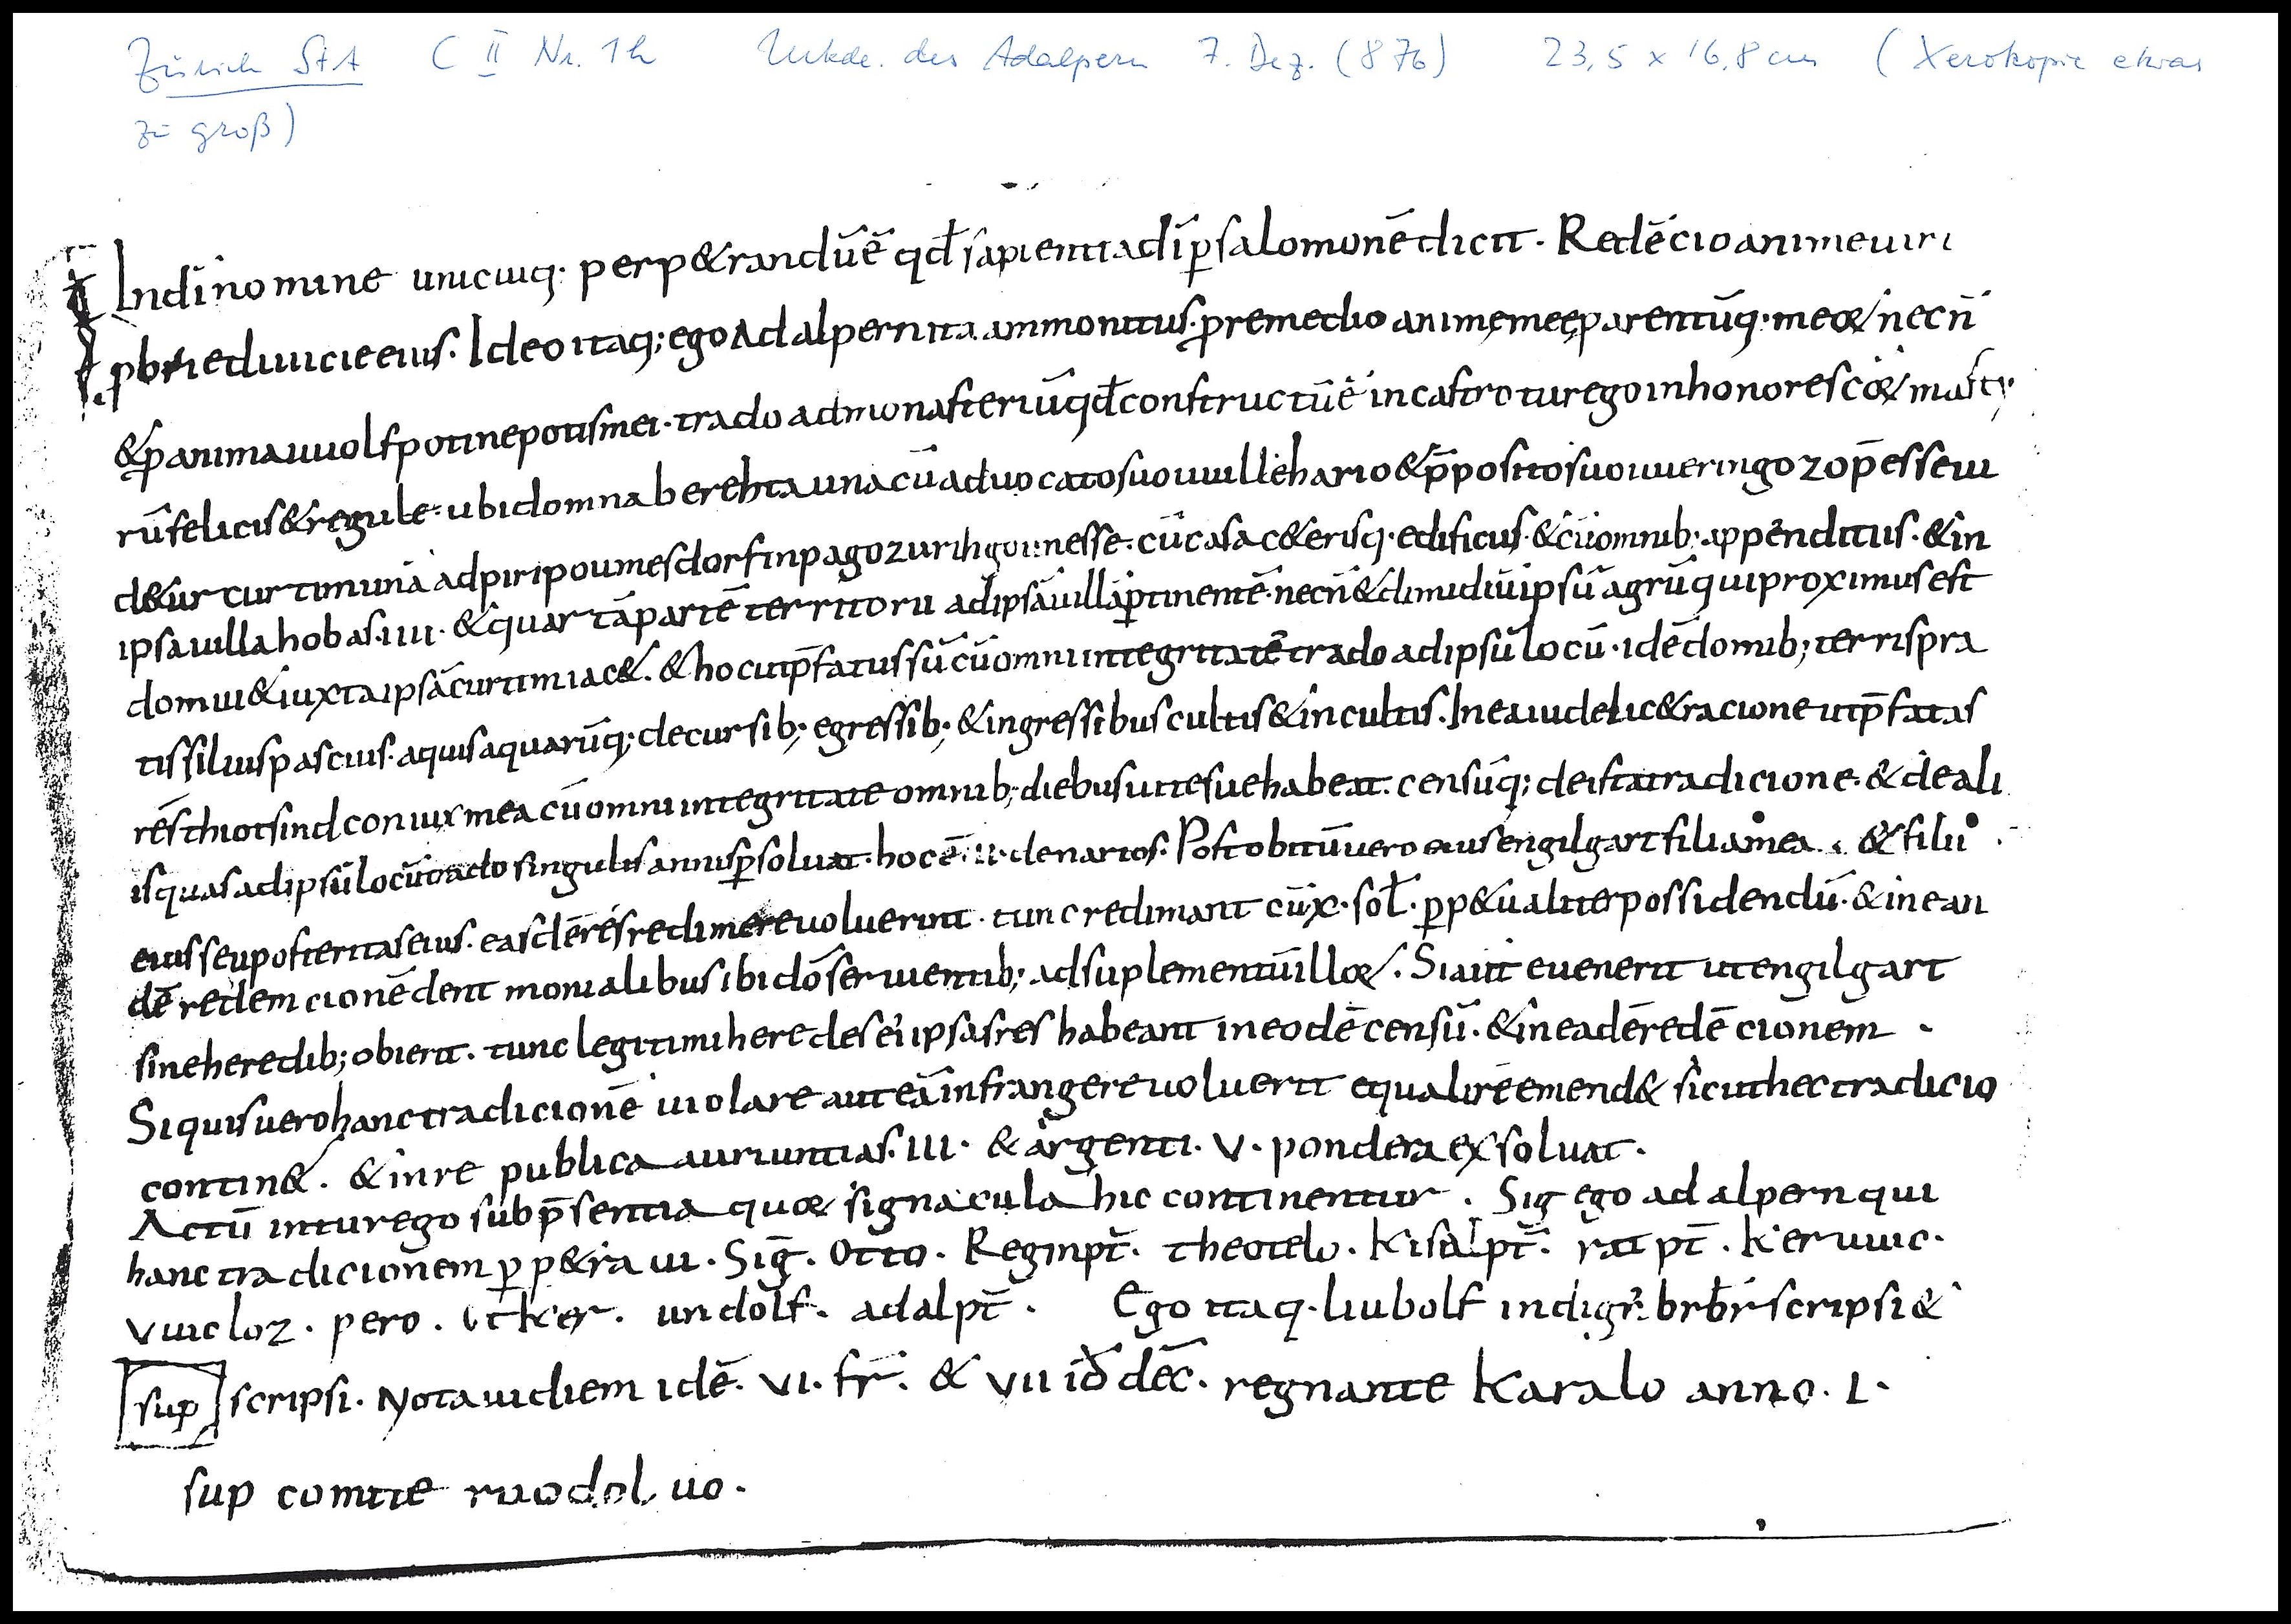 Zürich StA C II Nr. 1h Urkde. des Adalpern 7. Dez. (876) 23,5 x 16,8 cm (Xerokopie etwas
zu groß)
In di nomine unicuiq· perp&randū ē qđ sapientia di p salomonē dicit · Redēcio anime uiri
ppriȩ diuicie eius · Ideo itaq; ego Adalpern ita ammonitus · p remedio animȩ meȩ parentūq· meoꝝ necñ
& p anima uuolfpoti nepotis mei · trado ad monasteriū qđ constructū ē in castro turego in honore scoꝝ marty
rū felicis & regule · ubi domna berehta una cū aduocato suo uuillehario & p̄posito suo uueringozo p̄esse ui
d&ur curtim unā ad piripoumesdorf in pago zurihgouue esse · cū casa c&erisq· edificiis · & cū omnib; appendiciis · & in
ipsa uilla hobas · IIII · & quartā partē territorii ad ipsā uillā ptinentē · necñ & dimidiū ipsū agrū qui proximus est
domui & iuxta ipsā curtim iac& · & hoc ut p̄fatus sū cū omni integritatē trado ad ipsū locū · idē domib; terris pra
tis siluis pascuis · aquis aquarūq; decursib; egressib; & ingressibus cultis & incultis · In ea uidelic& racione ut p̄fatas
rēs thiotsind coniux mea cū omni integritate omnib; diebus uite sue habeat · censūq; de ista tradicione · & de ali
is quas ad ipsū locū trado singulis annis psoluat · hoc ē · II · denarios · Post obitū uero eius engilgart filia mea · & filii
eius seu posteritas eius · easdē rēs redimere uoluerint · tunc redimant cū x · soł · pp&ualiter possidendū · & in ean
dē redemcionē dent monialibus ibi dō seruientib; ad suplementū illoꝝ · Si aut euenerit ut engilgart
sine heredib; obierit · tunc legitimi heredes ei ipsas res habeant in eodē censū · & in eadē redēcionem ·
Si quis uero hanc tradicionē uiolare aut eā infrangere uoluerit equali rē emend& sicut hec tradicio
contin& · & in re publica auri untias · III · & argenti · V · pondera exsoluat ·
Actū in turego sub p̄sentia quoꝝ signacula hic continentur · Sig ego adalpern qui
hanc tradicionem pp&raui · Siḡ · Otto · Reginpt̄ · theotelo · Kisalpt̄ · ratpt̄ · Keruuic ·
Vuicloz · pero · otker · undolf · adalpt̄ · Ego itaq· liubolf indigñ · brbr scripsi &
sup scripsi · Notaui diem idē · VI · fr̄ · & VII iđ dēc · regnante Karalo anno · I ·
sup comite ruodoluo ·